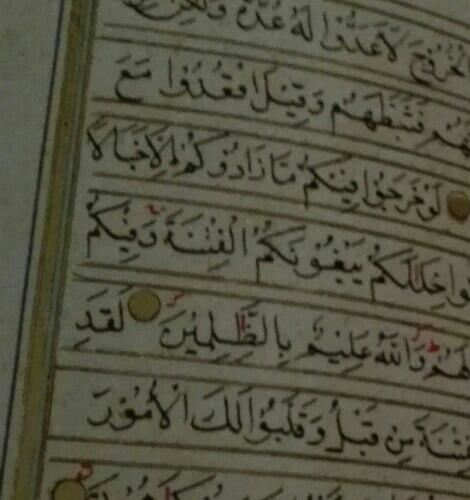 الْخُرُوجَ لَاَعَدُّوا لَهُ عُدَّةً وَلٰكِنْ
فَثَبَّطَهُمْ وَقِيلَ اقْعُدُوا مَعَ
لَوْ خَرَجُوا فِيكُمْ مَا زَادُوكُمْ اِلَّا خَبَالًا
خِلَالَكُمْ يَبْغُونَكُمُ الْفِتْنَةَ وَفِيكُمْ
لَهُمْ وَاللّٰهُ عَلِيمٌ بِالظّٰلِمِينَ لَقَدِ
مِنْ قَبْلُ وَقَلَّبُوا لَكَ الْاُمُورَ